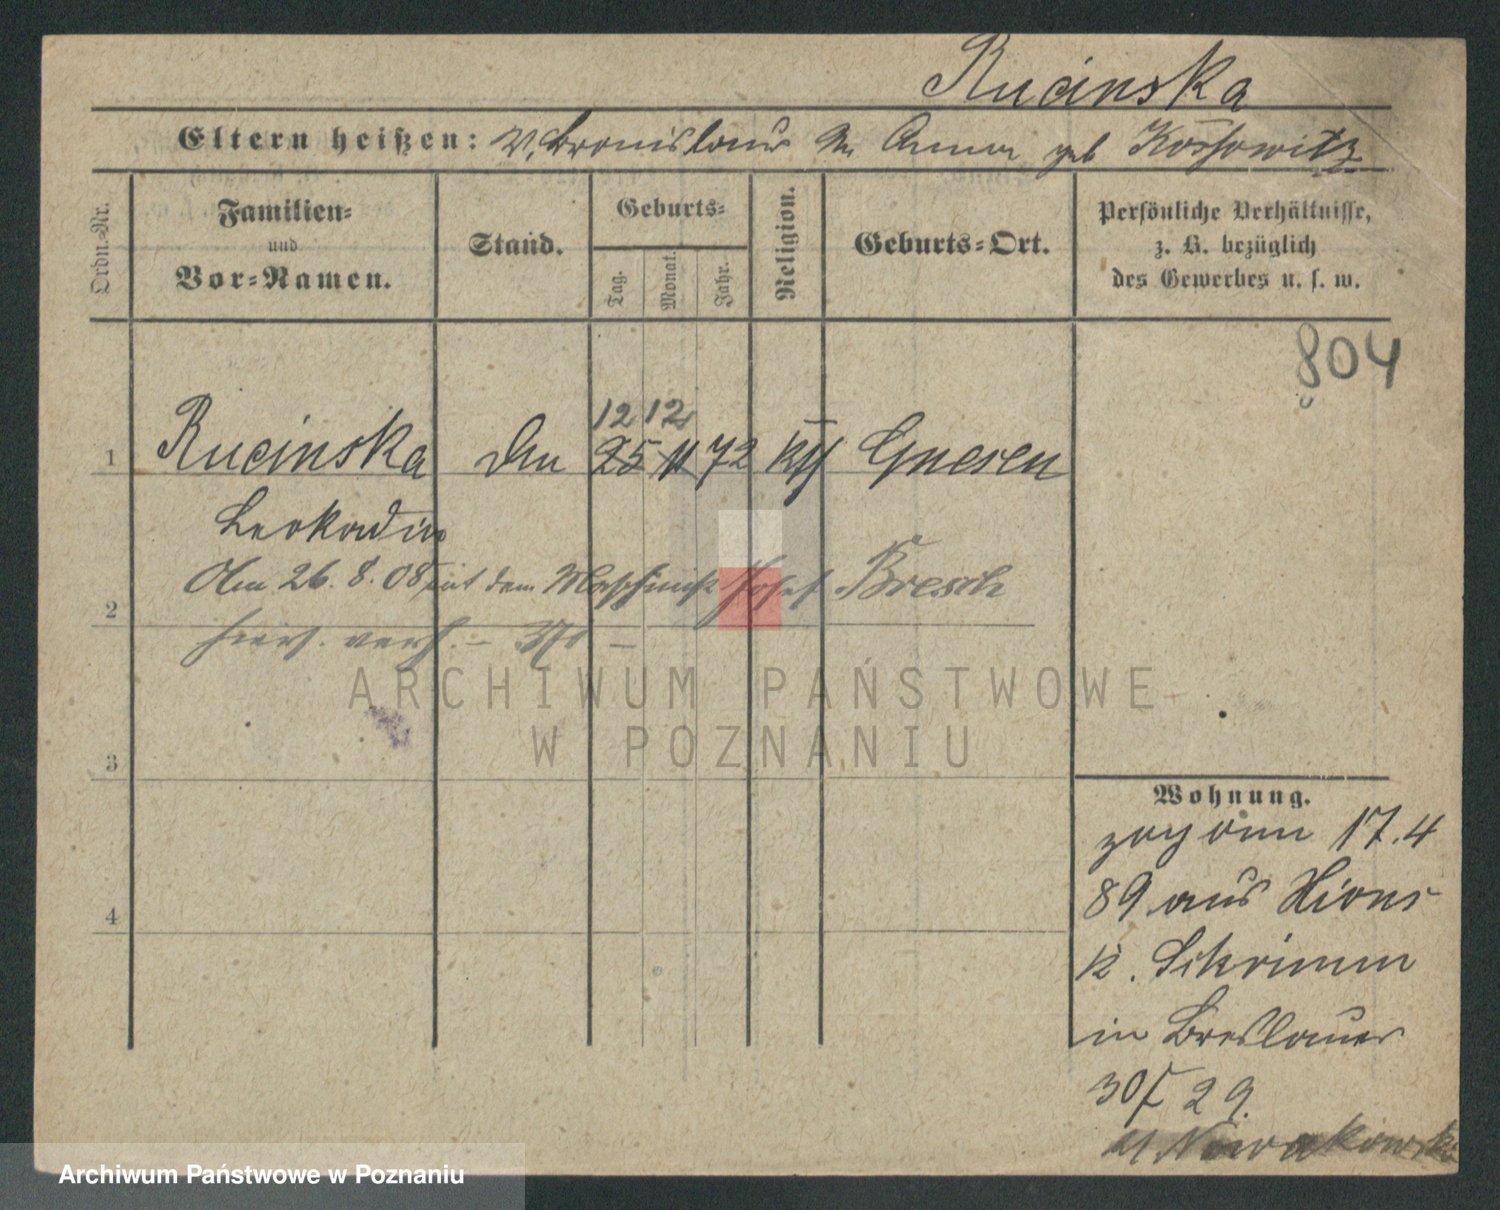 Rucinska
Eltern heißen: V. Bronislaus M. Anna geb Kossowitz
Ordn.-Nr.
Familien-
und
Vor-Namen.
Stand.
Geburts-
Tag.
Monat.
Jahr.
Religion.
Geburts-Ort.
Persönliche Verhältnisse,
z. B. bezüglich
des Gewerbes u. s. w.
804
12 12
1 Rucinska 25 11 72 kth Gnesen
Leokadia
Am 26. 8. 08 mit dem Josef Bresch
2
hiers. verh. –
3
4
ARCHIWUM PAŃSTWOWE
W POZNANIU
Wohnung.
zog am 17.4
89 aus Xions
K. Schrimm
in Breslauer
30 29.
Nowakowski
Archiwum Państwowe w Poznaniu